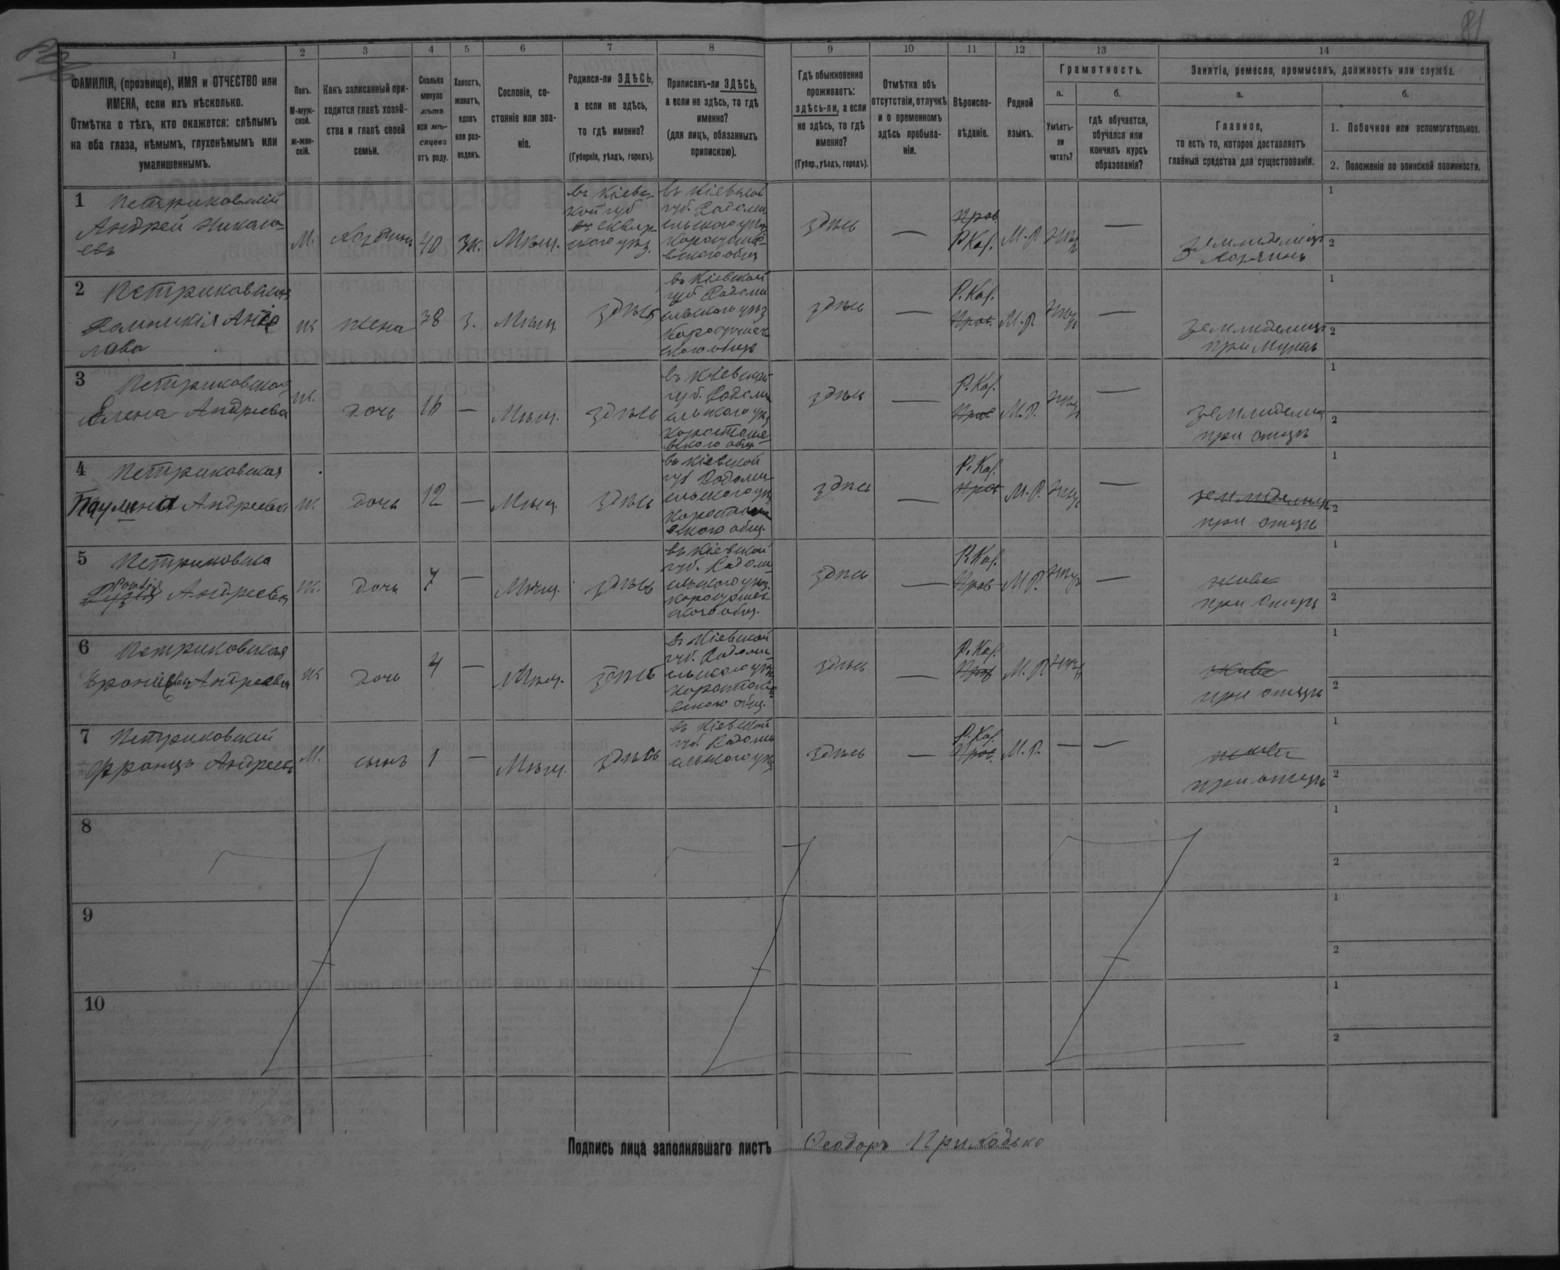 81
1 2 3 4 5 6 7 8 9 10 11 12 13 14
ФАМИЛІЯ, (прозвище), ИМЯ и ОТЧЕСТВО или
ИМЕНА, если ихъ нѣсколько.
Отмѣтка о тѣхъ, кто окажется: слѣпымъ
на оба глаза, нѣмымъ, глухонѣмымъ или
умалишеннымъ.
Полъ.
М-муж-
ской.
ж-жен-
скій.
Какъ записанный при-
ходится главѣ хозяй-
ства и главѣ своей
семьи.
Сколько
минуло
лѣтъ
или мѣ-
сяцевъ
отъ роду.
Холостъ,
женатъ,
вдовъ
или раз-
веденъ.
Сословіе, со-
стояніе или зва-
ніе.
Родился-ли ЗДѢСЬ,
а если не здѣсь,
то гдѣ именно?
(Губернія, уѣздъ, городъ).
Приписанъ-ли ЗДѢСЬ,
а если не здѣсь, то гдѣ
именно?
(для лицъ, обязанныхъ
припискою).
Гдѣ обыкновенно
проживаетъ:
здѣсь-ли, а если
не здѣсь, то гдѣ
именно?
(Губер., уѣздъ, городъ).
Отмѣтка объ
отсутствіи, отлучкѣ
и о временномъ
здѣсь пребыва-
ніи.
Вѣроиспо-
вѣданіе.
Родной
языкъ.
Грамотность.
а.
Умѣетъ-
ли
читать?
б.
гдѣ обучается,
обучался или
кончилъ курсъ
образованія?
Занятіе, ремесло, промыселъ, должность или служба.
а.
Главное,
то есть то, которое доставляетъ
главныя средства для существованія.
б.
1. Побочное или вспомогательное.
2. Положеніе по воинской повинности.
1 Петриковскій
Андрей Никола-
евъ
М. Хозяинъ 40 Ж. Мѣщ.
въ Кіевс-
кой губ
въ Сквир-
ского уѣз.
въ Кіевской
губ. Радомы
сльского уѣз
Коростыше-
вского общ
здѣсь — Прав Р. Каф. М. Р. —
Земледѣлецъ
Хозяинъ
1
2
2 Петриковская
ж жена 38 З. Мѣщ здѣсь
въ Кіевской
губ Радомы
сльского уѣз
здѣсь — Р. Каф. Прав. М. Р.
земледѣлица
при Мужѣ
1
2
3 Петриковская
Елена Андреева
ж. дочь 16 — Мѣщ. здѣсь
въ Кіевской
губ. Радомы
сльского уѣз
вского общ
здѣсь — Р. Каф. Прав М. Р. —
земледѣлица
при отцѣ
1
2
4 Петриковская
Паулина Андреева
ж. дочь 12 — Мѣщ здѣсь
въ Кіевской
губ Радомы
сльского уѣз
вского общ
здѣсь — Р. Каф. Прав М. Р. —
земледѣлица
при отцѣ
1
2
5 Петриковска
Андреева
ж. дочь 7 — Мѣщ. здѣсь
въ Кіевской
губ. Радомы
сльского уѣз.
ского общ.
здѣсь — Р. Каф. Прав М. Р. —
живе
при Отцѣ
1
2
6 Петриковская
Андреева
ж дочь 4 — Мѣщ. здѣсь
въ Кіевской
губ. Радомы
сльского уѣз
вского общ.
здѣсь — Р. Каф. Прав М. Р.
живе
при отцѣ
1
2
7 Петриковскій
Францъ Андреевъ
М. сынъ 1 — Мѣщ. здѣсь
въ Кіевской
губ. Радомы
сльского уѣз
здѣсь — Р. Каф. Прав. М. Р. — —
живе
при отцѣ
1
2
8
1
2
9
1
2
10
1
2
Подпись лица заполнявшаго листъ Ѳеодоръ Приходько